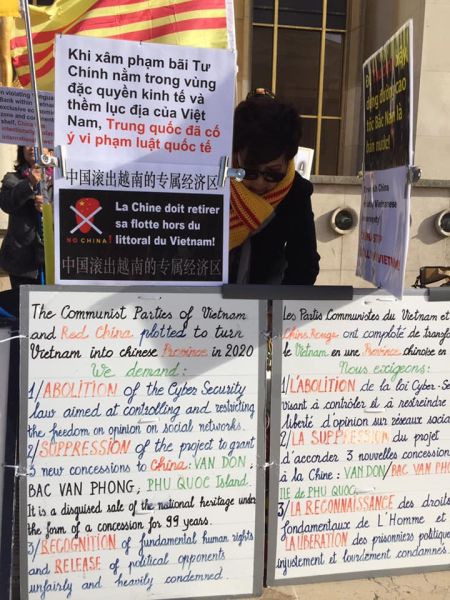 Khi xâm phạm bãi Tư
Chính nằm trong vùng
đặc quyền kinh tế và
thềm lục địa của Việt
Nam, Trung quốc đã cố
ý vi phạm luật quốc tế
中国滚出越南的专属经济区
NO CHINA!
La Chine doit retirer
sa flotte hors du
littoral du Vietnam!
中国滚出越南的专属经济区
The Communist Parties of Vietnam
and Red China plotted to turn
Vietnam into chinese Province in 2020
We demand:
1/ABOLITION of the Cyber Security
law aimed at controlling and restricting
the freedom on opinion on social networks.
2/SUPPRESSION of the project to grant
3 new concessions to China: VAN DON,
BAC VAN PHONG, PHU QUOC Island.
It is a disguised sale of the national heritage under
the form of a concession for 99 years.
3/RECOGNITION of fundamental human rights
and RELEASE of political opponents
unfairly and heavily condemned.
Les Partis Communistes du Vietnam et
Chine Rouge ont comploté de transfo
le Vietnam en une Province chinoise en
Nous exigeons:
1/L'ABOLITION de la loi Cyber-Se
visant à contrôler et à restreindre
liberté d'opinion sur réseaux socia
2/LA SUPPRESSION du projet
d'accorder 3 nouvelles concession
à la Chine: VAN DON/BAC VAN PH
ILE de PHU QUOC.
3/LA RECONNAISSANCE des droits
fondamentaux de L'Homme et
LA LIBERATION des prisonniers politique
injustement et lourdement condamnés.